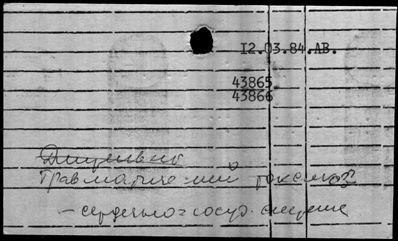 12.03.84.АВ.
43865
43866
Травматический токсикоз
- сердечно=сосуд. система